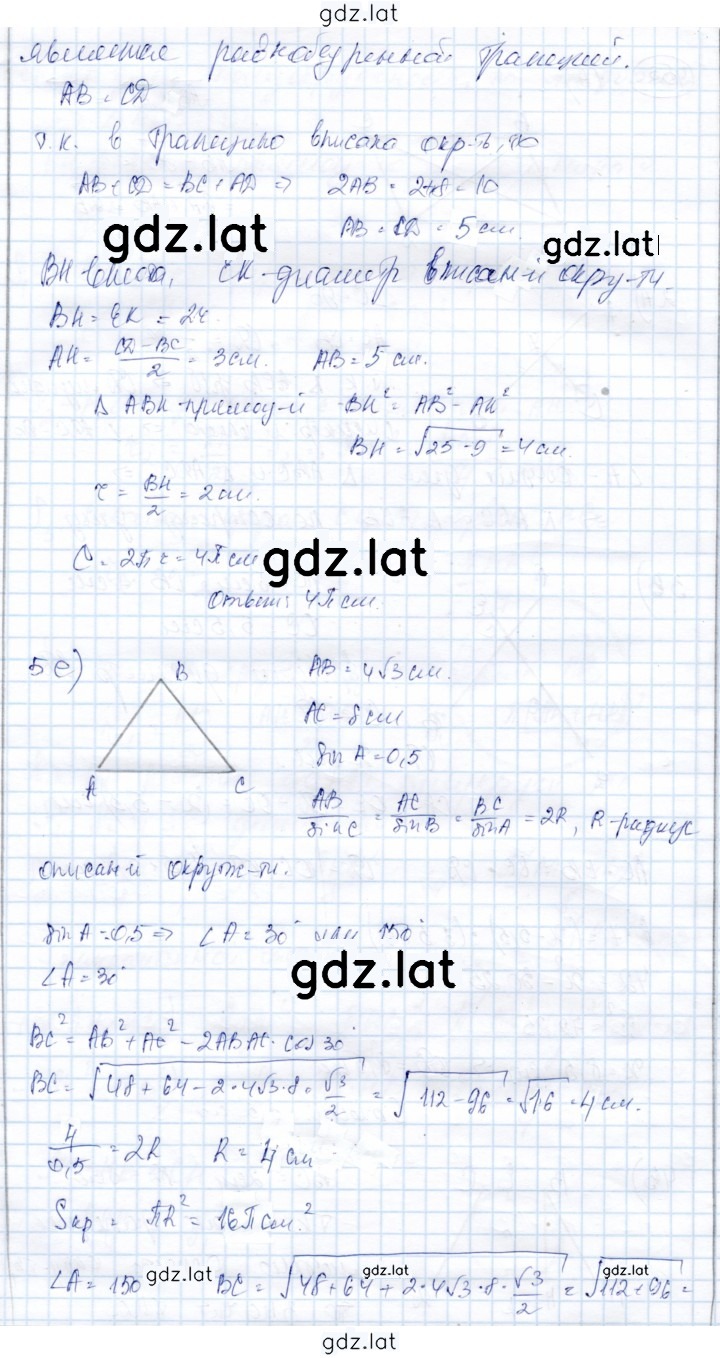 gdz.lat
является равнобедренной трапецией.
AB = CD
т.к. в трапецию вписана окр-ть, то
AB+CD = BC+AD ⇒ 2AB = 2+8 = 10
gdz.lat
AB = CD = 5 см.
gdz.lat
BH-высота, EK-диаметр вписан-й окру-ти.
BH = EK = 2r
AH = (CD-BC)/2 = 3 см. AB = 5 см.
Δ ABH-прямоу-й BH² = AB² - AH²
BH = √(25-9) = 4 см.
r = BH/2 = 2 см.
C = 2πr = 4π см
gdz.lat
Ответ: 4π см.
5e)
B
A
C
AB = 4√3 см.
AC = 8 см
sin A = 0,5
AB/sin C = AC/sin B = BC/sin A = 2R, R-радиус
описан-й окруж-ти.
sin A = 0,5 ⇒ ∠A = 30° или 150°
∠A = 30°
gdz.lat
BC² = AB² + AC² - 2AB·AC · cos 30°
BC = √(48 + 64 - 2·4√3·8·√3/2) = √(112-96) = √16 = 4 см.
4/0,5 = 2R R = 4 см
Sкр = πR² = 16π см.²
∠A = 150° gdz.lat BC = √(48+64+2·4√3·8·√3/2) = √(112+96) =
gdz.lat
gdz.lat
gdz.lat